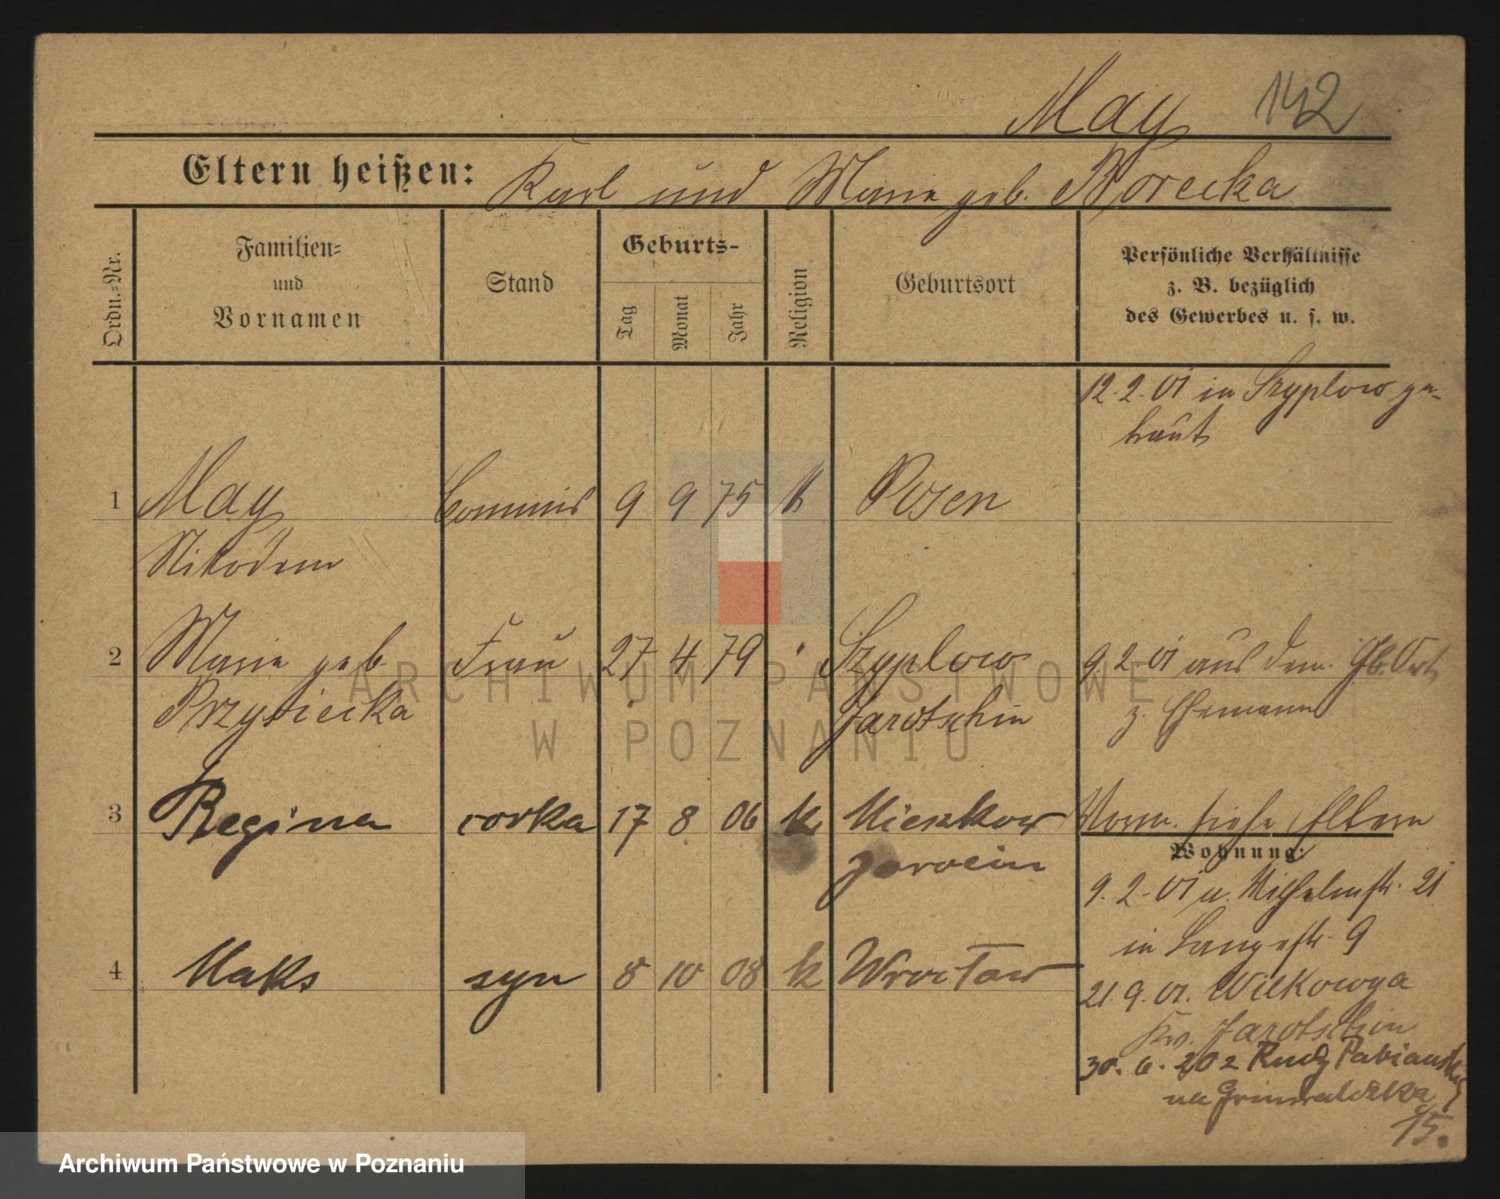 May 142
Eltern heißen: Karl und Marie geb. Norecka
Ordn.-Nr.
Familien-
und
Vornamen
Stand
Geburts-
Tag
Monat
Jahr
Religion
Geburtsort
Persönliche Verhältnisse
z. B. bezüglich
des Gewerbes u. s. w.
12.2.01 in Szyplow ge-
traut
1 May Commis 9 9 75 k Posen
Nikodem
2 Marie geb Frau 27 4 79 " Szyplow 9 2 01 aus dem Gb. Ort
Przysiecka Jarotschin z. Ehemann
3 Regina corka 17 8 06 k Mieszkow Vorm. siehe Eltern
Jarocin
Wohnung:
9.2.01 v. Wilhelmstr. 21
in Langestr. 9
4 Maks syn 8 10 08 k Wrocław
21.9.01. Wilkowya
Kr. Jarotschin
30.6. Rudy Pabianski
na Grunwaldzka
15.
ARCHIWUM PAŃSTWOWE
W POZNANIU
Archiwum Państwowe w Poznaniu